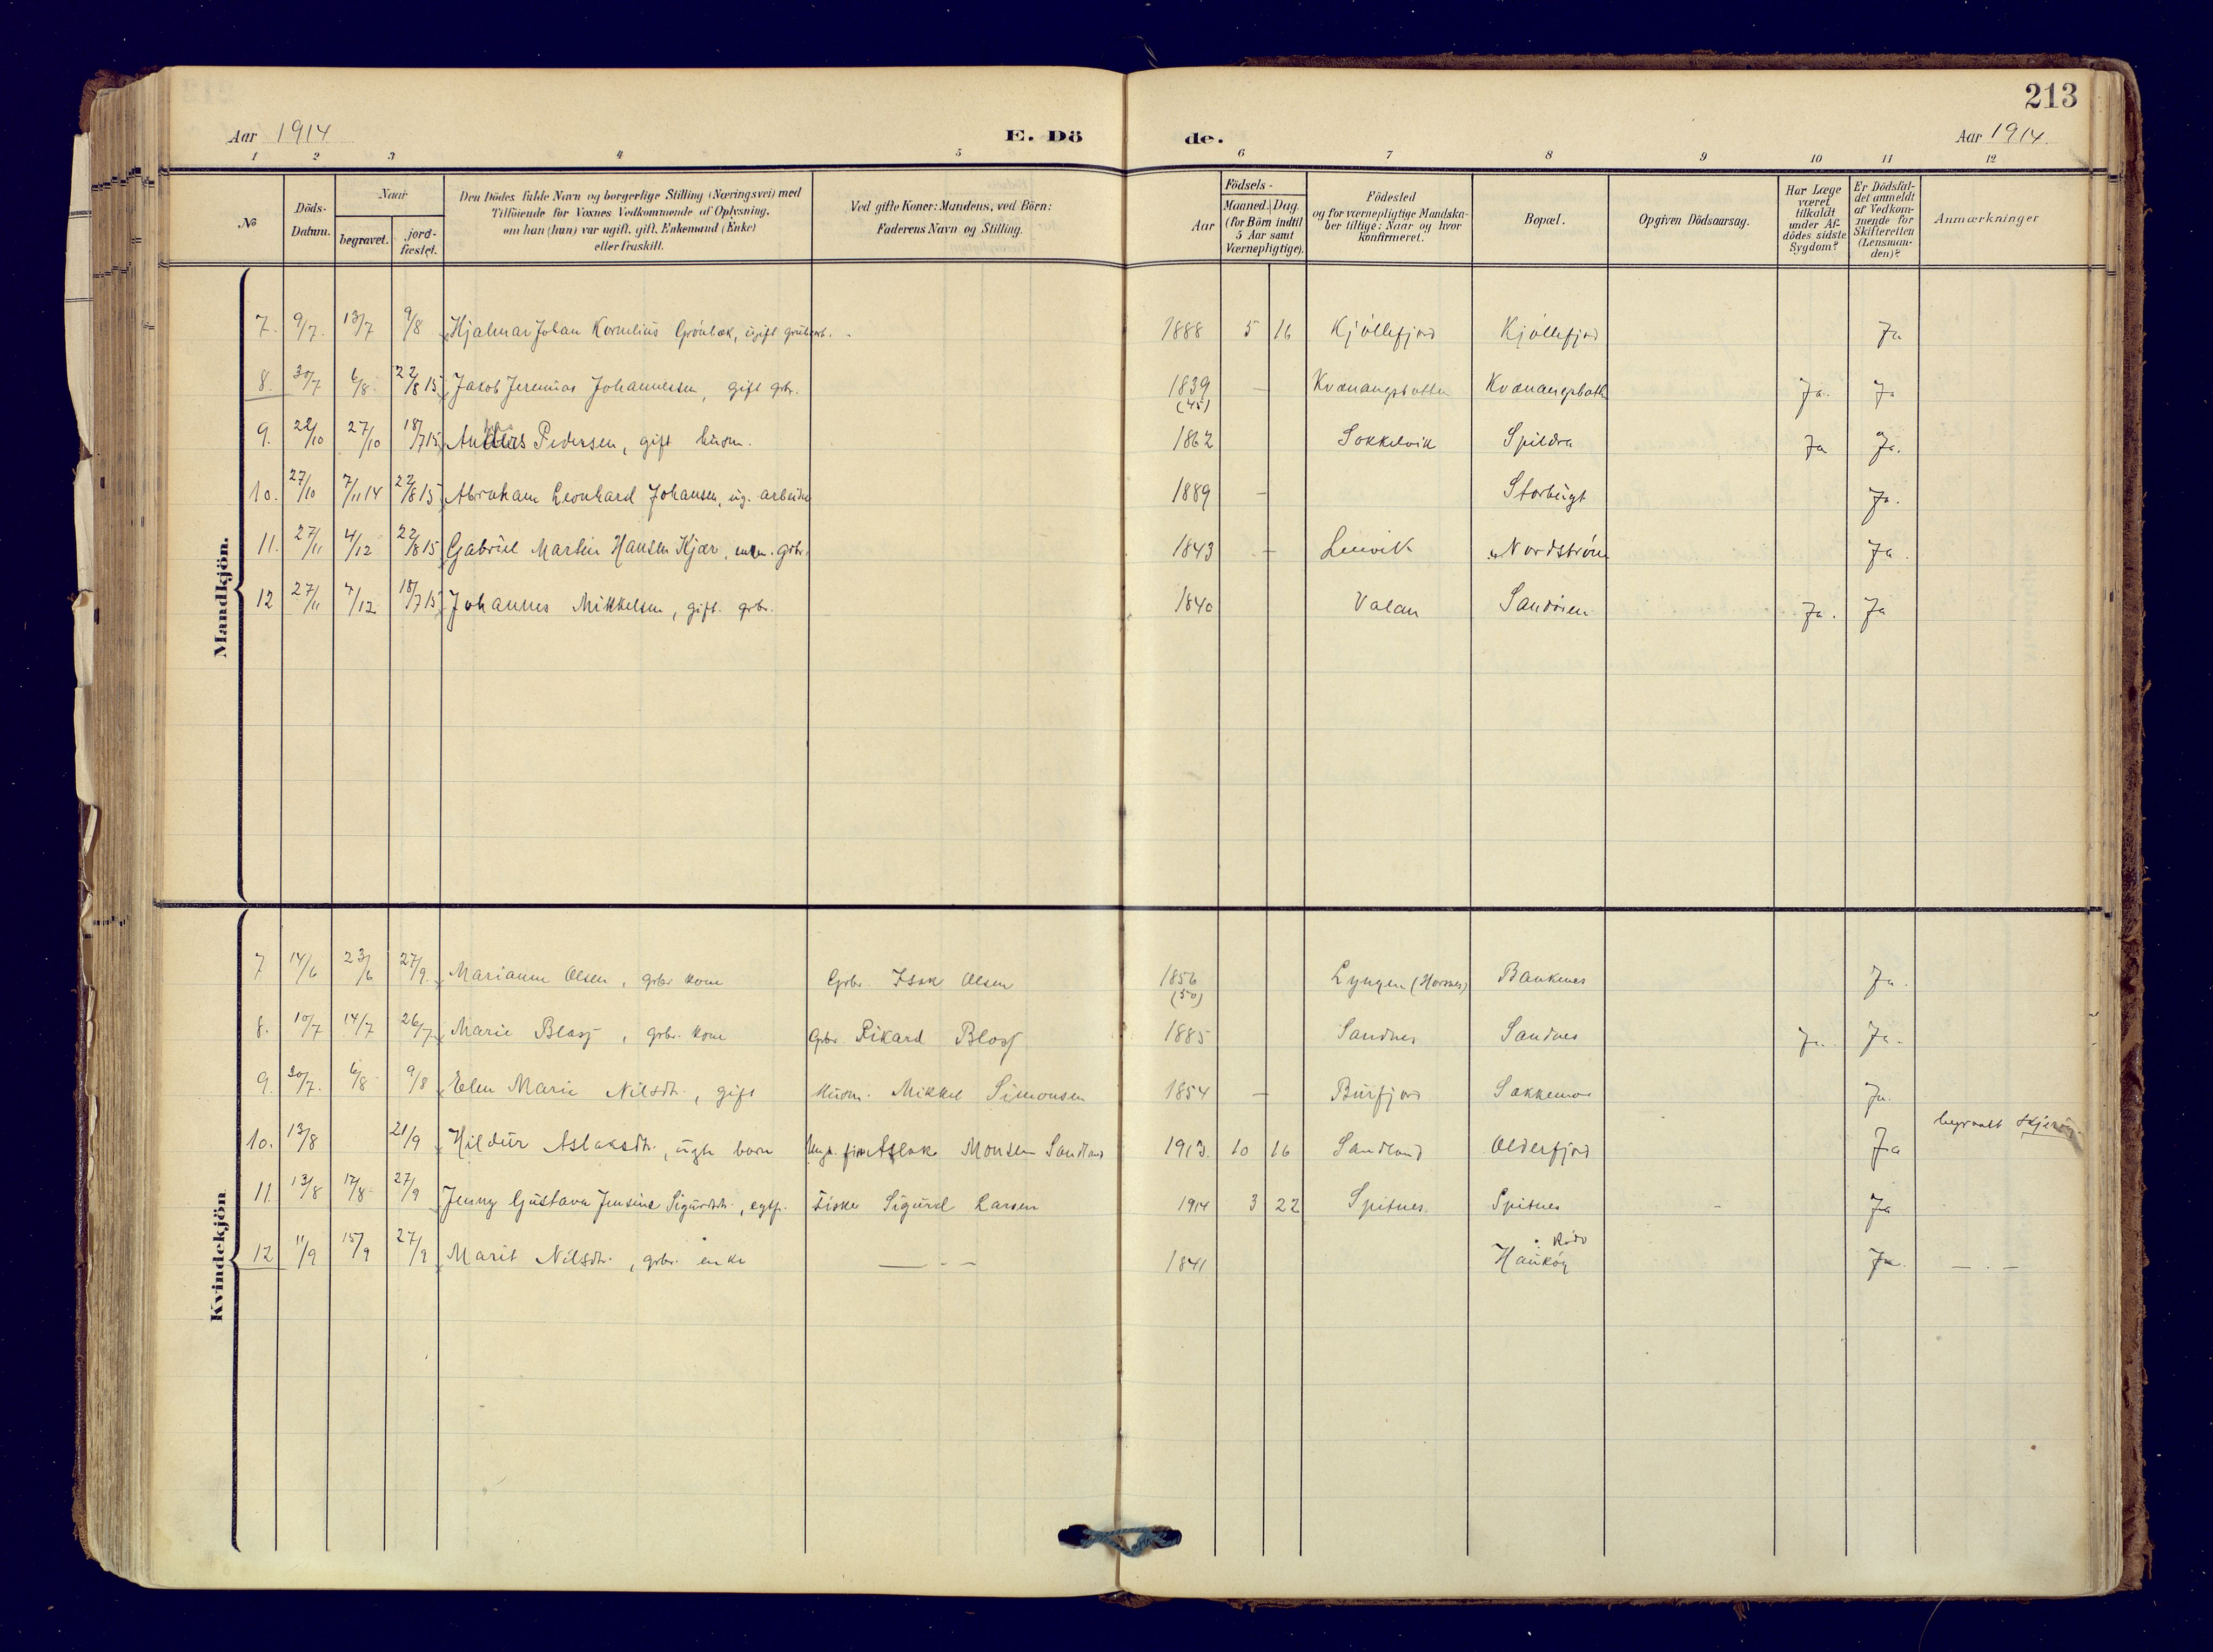 213
Aar 1914
E. Dö
de.
Aar 1914.
1 2 3 4 5 6 7 8 9 10 11 12
№
Döds-
Datum.
Naar
begravet.
jord-
fæstet.
Den Dödes fulde Navn og borgerlige Stilling (Næringsvei) med
Tilföiende for Voxnes Vedkommende af Oplysning,
om han (hun) var ugift, gift, Enkemand (Enke)
eller fraskilt.
Ved gifte Koner: Mandens, ved Börn:
Faderens Navn og Stilling.
Aar
Födsels-
Maaned. Dag.
(for Börn indtil
5 Aar samt
Værnepligtige).
Födested
og for værnepligtige Mandska-
ber tillige: Naar og hvor
konfirmeret.
Bopæl.
Opgiven Dödsaarsag.
Har Læge
været
tilkaldt
under Af-
dödes sidste
Sygdom?
Er Dödsfal-
det anmeldt
af Vedkom-
mende for
Skifteretten
(Lensman-
den)?
Anmærkninger
Mandkjön.
7. 9/7. 13/7 9/8 Hjalmar Johan Kornelius Grönbæk, ugift 1888 5 16 Kjöllefjord Kjöllefjord Ja
8. 30/7 6/8 22/8 15 Jakob Jeremias Johannessen, gift grbr. 1839 (45) — Kvænangsbotten Kvænangsbotn Ja. Ja
9. 22/10 27/10 18/7 15 Pedersen, gift husm. 1862 Sokkelvik Spildra Ja Ja.
10. 27/10 7/11 14 22/8 15 Abraham Leonhard Johansen, ug. arbeider 1889 — Storbugt Ja.
11. 27/11 4/12 22/8 15 Gabriel Martin Hansen Kjær, grbr. 1843 — Lenvik Nordström Ja.
12 27/11 4/12 18/7 15 Johannes Mikkelsen, gift. grbr. 1840 Valan Sandören Ja. Ja
Kvindekjön.
7 14/6 23/6 27/9. Marianne Olsen, grbr kone Grbr. Isak Olsen 1856 (50) Lyngen (Horsnes) Bankenes Ja.
8. 10/7 14/7 26/7 Marie Blasj, grbr. kone Grbr. Rikard Blosj 1885 Sandnes Sandnes Ja. Ja.
9. 30/7. 6/8 9/8 Elen Marie Nilsdtr., gift Husm. Mikkel Simonsen 1854 — Burfjord Sokkemo Ja.
begravet Skjervøy.
10. 13/8 21/9 Hildur Aslaksdtr., ugte barn Ungk. Aslak Monsen Sandland 1913. 10 16 Sandland Olderfjord Ja
11. 13/8 17/8 27/9 Jenny Gustava Jensine Sigurdsdtr., egtf. Fisker Sigurd Larsen 1914 3 22 Spitnes. Spitnes - Ja
12 11/9 15/9 27/9 Marit Nilsdtr., grbr. enke — - — 1841 Rödö
Hauköy Ja. — . —